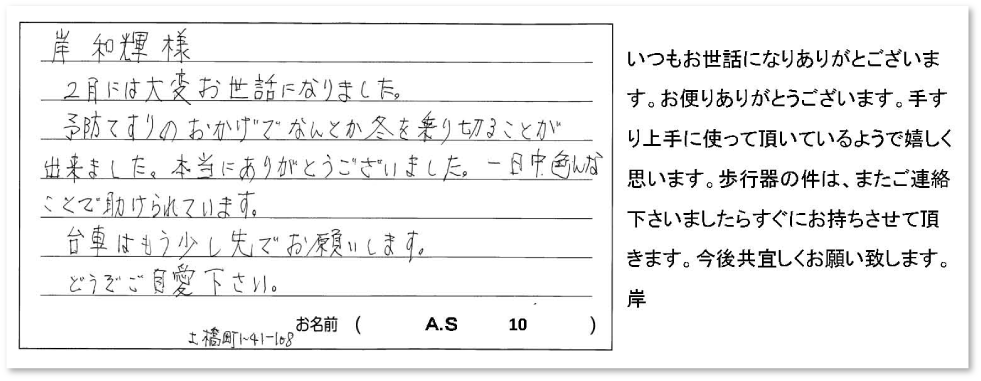 岸 和輝 様
2月には大変お世話になりました。
予防てすりのおかげでなんとか冬を乗り切ることが
出来ました。本当にありがとうございました。一日中色んな
ことで助けられています。
台車はもう少し先でお願いします。
どうぞご自愛下さい。
土橋町1-41-108 お名前 ( A.S 10 )
いつもお世話になりありがとございま
す。お便りありがとうございます。手す
り上手に使って頂いているようで嬉しく
思います。歩行器の件は、またご連絡
下さいましたらすぐにお持ちさせて頂
きます。今後共宜しくお願い致します。
岸